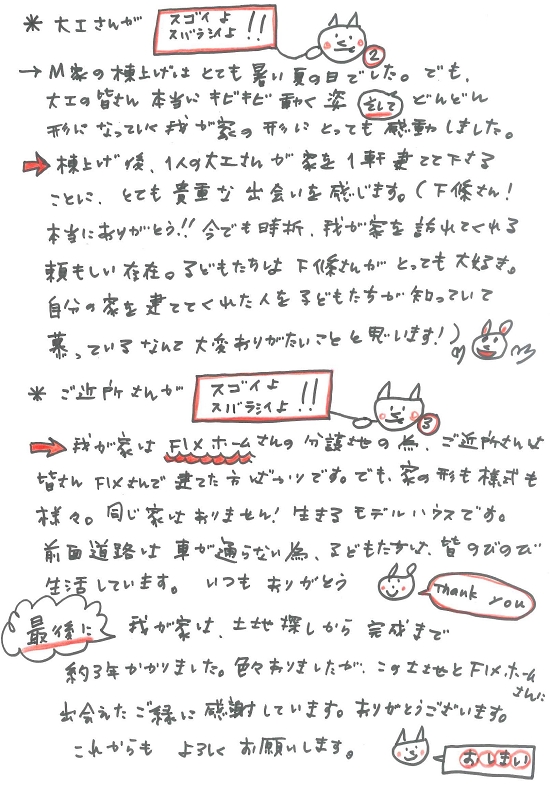 * 大工さんが スゴイよ スバラシイよ !! 2
→ M家の棟上げはとても暑い夏の日でした。でも、
大工の皆さん 本当にキビキビ動く姿 そして どんどん
形になっていく我が家の形にとっても感動しました。
➡ 棟上げ後、1人の大工さんが家を1軒建てて下さる
ことに、とても貴重な出会いを感じます。(下條さん!
本当にありがとう!! 今でも時折、我が家を訪れてくれる
頼もしい存在。子どもたちは下條さんがとっても大好き。
自分の家を建ててくれた人を子どもたちが知っていて
慕っているなんて大変ありがたいことと思います!)
* ご近所さんが スゴイよ スバラシイよ !! 3
➡ 我が家はFIXホームさんの分譲地の為、ご近所さんは
皆さんFIXさんで建てた方ばかりです。でも、家の形も様式も
様々。同じ家はありません! 生きるモデルハウスです。
前面道路は車が通らない為、子どもたちは、皆のびのび
生活しています。 いつもありがとう Thank you
最後に 我が家は、土地探しから完成まで
約3年かかりました。色々ありましたが、この土地とFIXホームさんに
出会えたご縁に感謝しています。ありがとうございます。
これからも よろしくお願いします。 おしまい